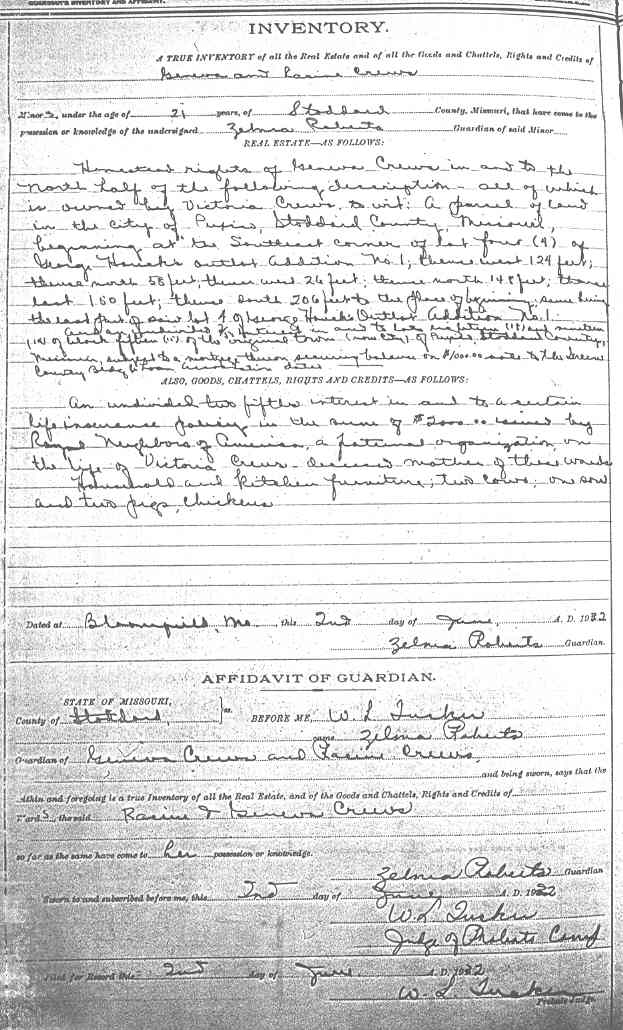 GUARDIAN'S INVENTORY AND AFFIDAVIT.
INVENTORY.
A TRUE INVENTORY of all the Real Estate and of all the Goods and Chattels, Rights and Credits of
Geneva and Racine Crews
Minors, under the age of 21 years, of Stoddard County, Missouri, that have come to the
possession or knowledge of the undersigned Zelma Roberts Guardian of said Minor
REAL ESTATE—AS FOLLOWS:
Homestead rights of Geneva Crews in and to the
North half of the following description - all of which
is owned by Victoria Crews, to wit: A parcel of land
in the city of Puxico, Stoddard County, Missouri,
beginning at the Southeast corner of Lot four (4) of
George Houck's outlot Addition No. 1; thence west 124 feet;
thence north 58 feet; thence west 26 feet; thence north 148 feet; thence
east 150 feet; thence South 206 feet to the place of beginning, same being
the east part of said lot 4 of George Houck's Outlot Addition No. 1.
And an undivided interest in and to lots eighteen (18) and nineteen
(19) of block fifteen (15) of the original town (now city) of Puxico, Stoddard County,
Missouri, subject to a mortgage thereon securing balance on $1000.00 note to the Greene
County Bldg & Loan Association dated
ALSO, GOODS, CHATTELS, RIGHTS AND CREDITS—AS FOLLOWS:
An undivided two fifths interest in and to a certain
life insurance policy in the sum of $2000.00 issued by
Royal Neighbors of America, a fraternal organization, on
the life of Victoria Crews - deceased mother of these wards
Household and kitchen furniture; two cows; one sow
and two pigs, chickens
Dated at Bloomfield, Mo. this 2nd day of June, A. D. 1932
Zelma Roberts Guardian.
AFFIDAVIT OF GUARDIAN.
STATE OF MISSOURI,
County of Stoddard, ss. BEFORE ME, W. L. Tucker
came Zelma Roberts
Guardian of Geneva Crews and Racine Crews,
and being sworn, says that the
within and foregoing is a true Inventory of all the Real Estate, and of the Goods and Chattels, Rights and Credits of
Wards, the said Racine & Geneva Crews
so far as the same have come to her possession or knowledge.
Zelma Roberts Guardian
Sworn to and subscribed before me, this 2nd day of June A. D. 1932
W. L. Tucker
Judge of Probate Court
Filed for Record this 2nd day of June A. D. 1932
W. L. Tucker
Probate Judge.